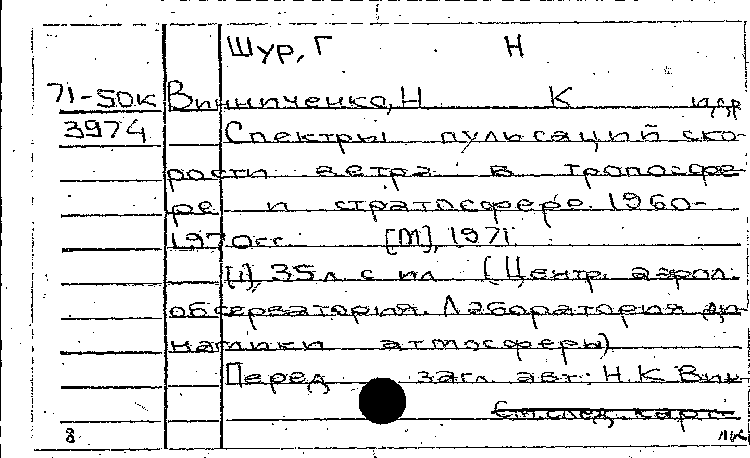 Шур, Г Н
71-50к Винниченко, Н К и др
3974 Спектры пульсаций ско-
рости ветра в тропосфе-
ре и стратосфере. 1960-
1970гг. [М], 1971.
[1], 35 л. с ил (Центр. аэрол.
обсерватория. Лаборатория ди
намики атмосферы)
Перед загл. авт.: Н. К Вин
См след. карт
8